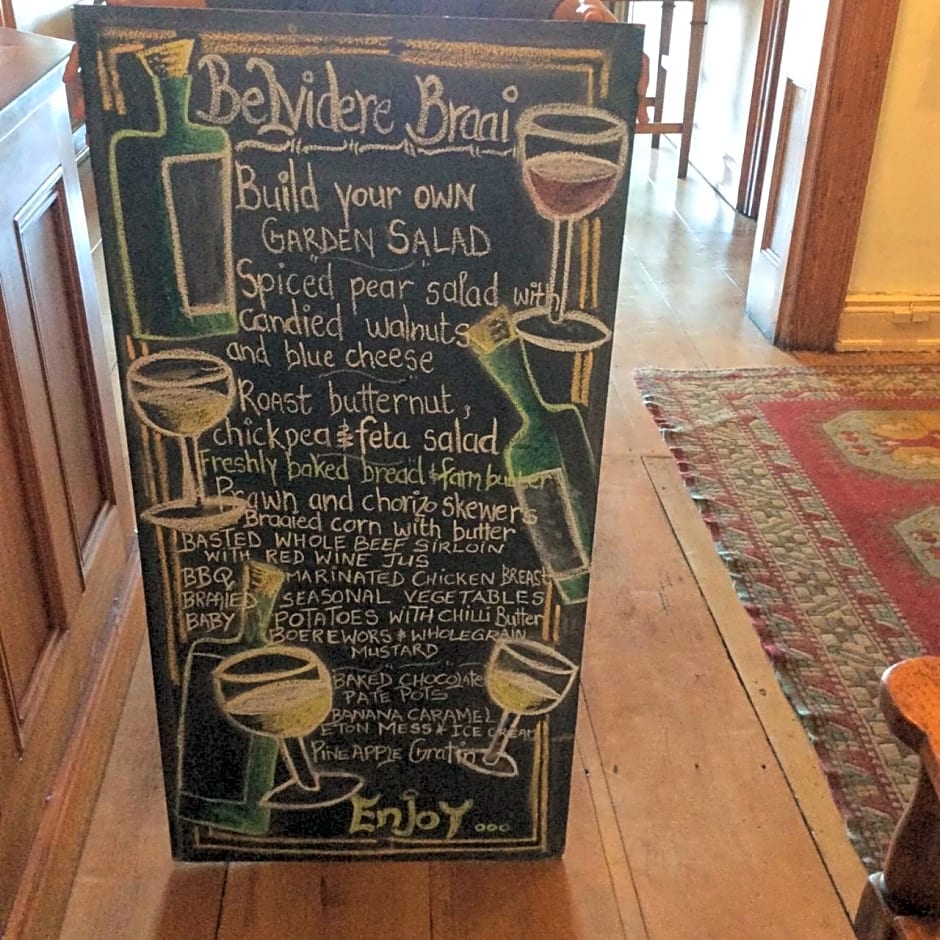 Belvidere Braai
Build your OWN
GARDEN SALAD
Spiced pear salad with
candied walnuts
and blue cheese
Roast butternut,
chickpea & feta salad
Freshly baked bread & farm butter
Prawn and chorizo skewers
Braaied corn with butter
BASTED WHOLE BEEF SIRLOIN
WITH RED WINE JUS
BBQ MARINATED CHICKEN BREAST
BRAAIED SEASONAL VEGETABLES
BABY POTATOES WITH CHILLI Butter
BOEREWORS & WHOLEGRAIN
MUSTARD
BAKED CHOCOlate
PATE POTS
BANANA CARAMEL
ETON MESS & ICE CREAM
PINEAPPLE Gratin
EnjoY...